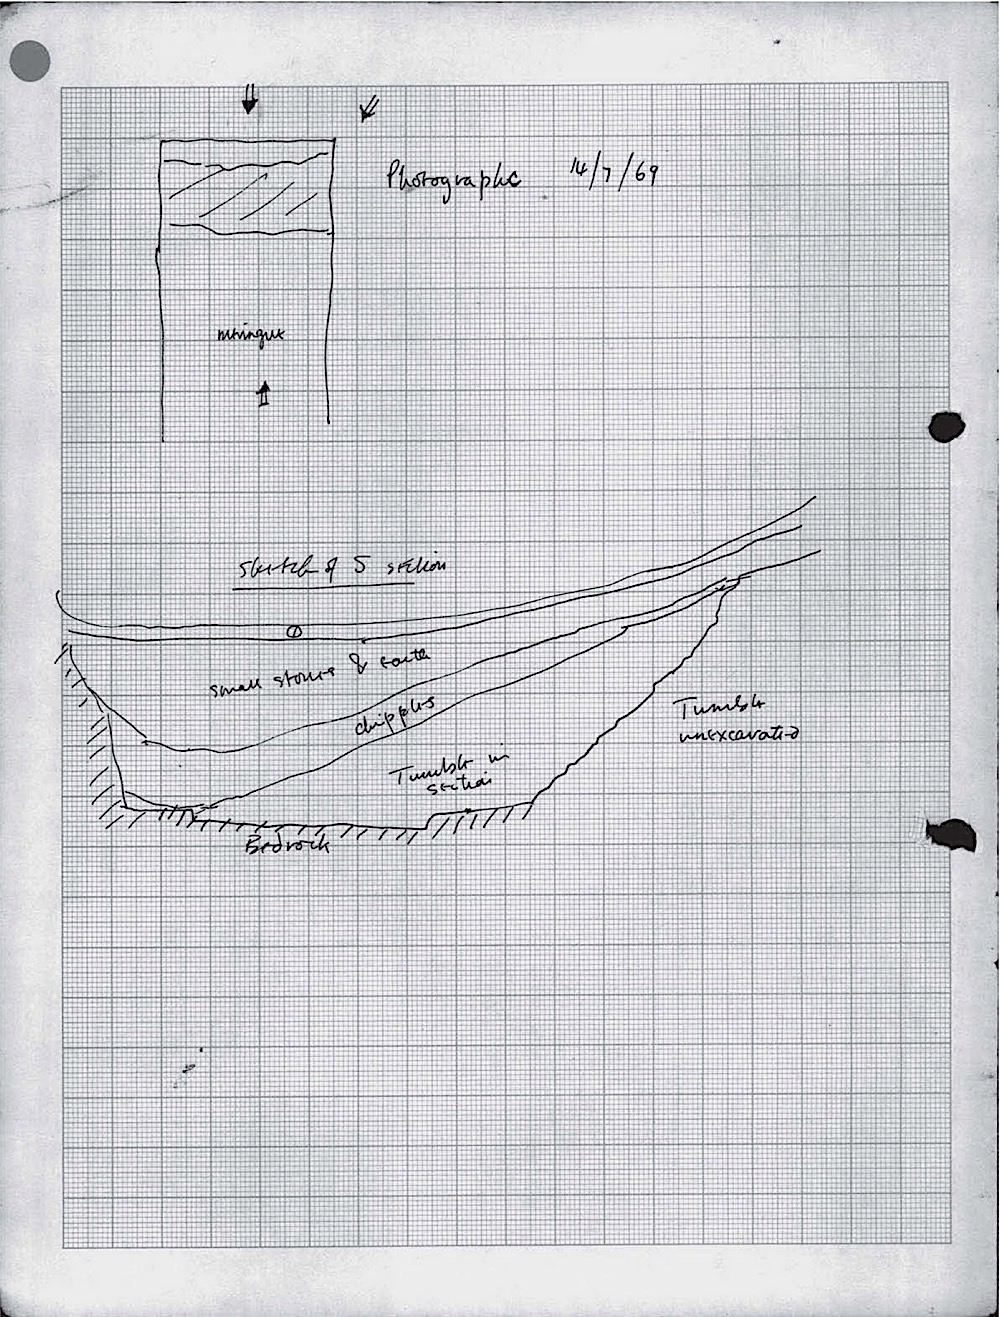 Photographic 14/7/69
meringue
Sketch of S section
①
small stones & earth
chipples
Tumble in
section
Tumble
unexcavated
Bedrock